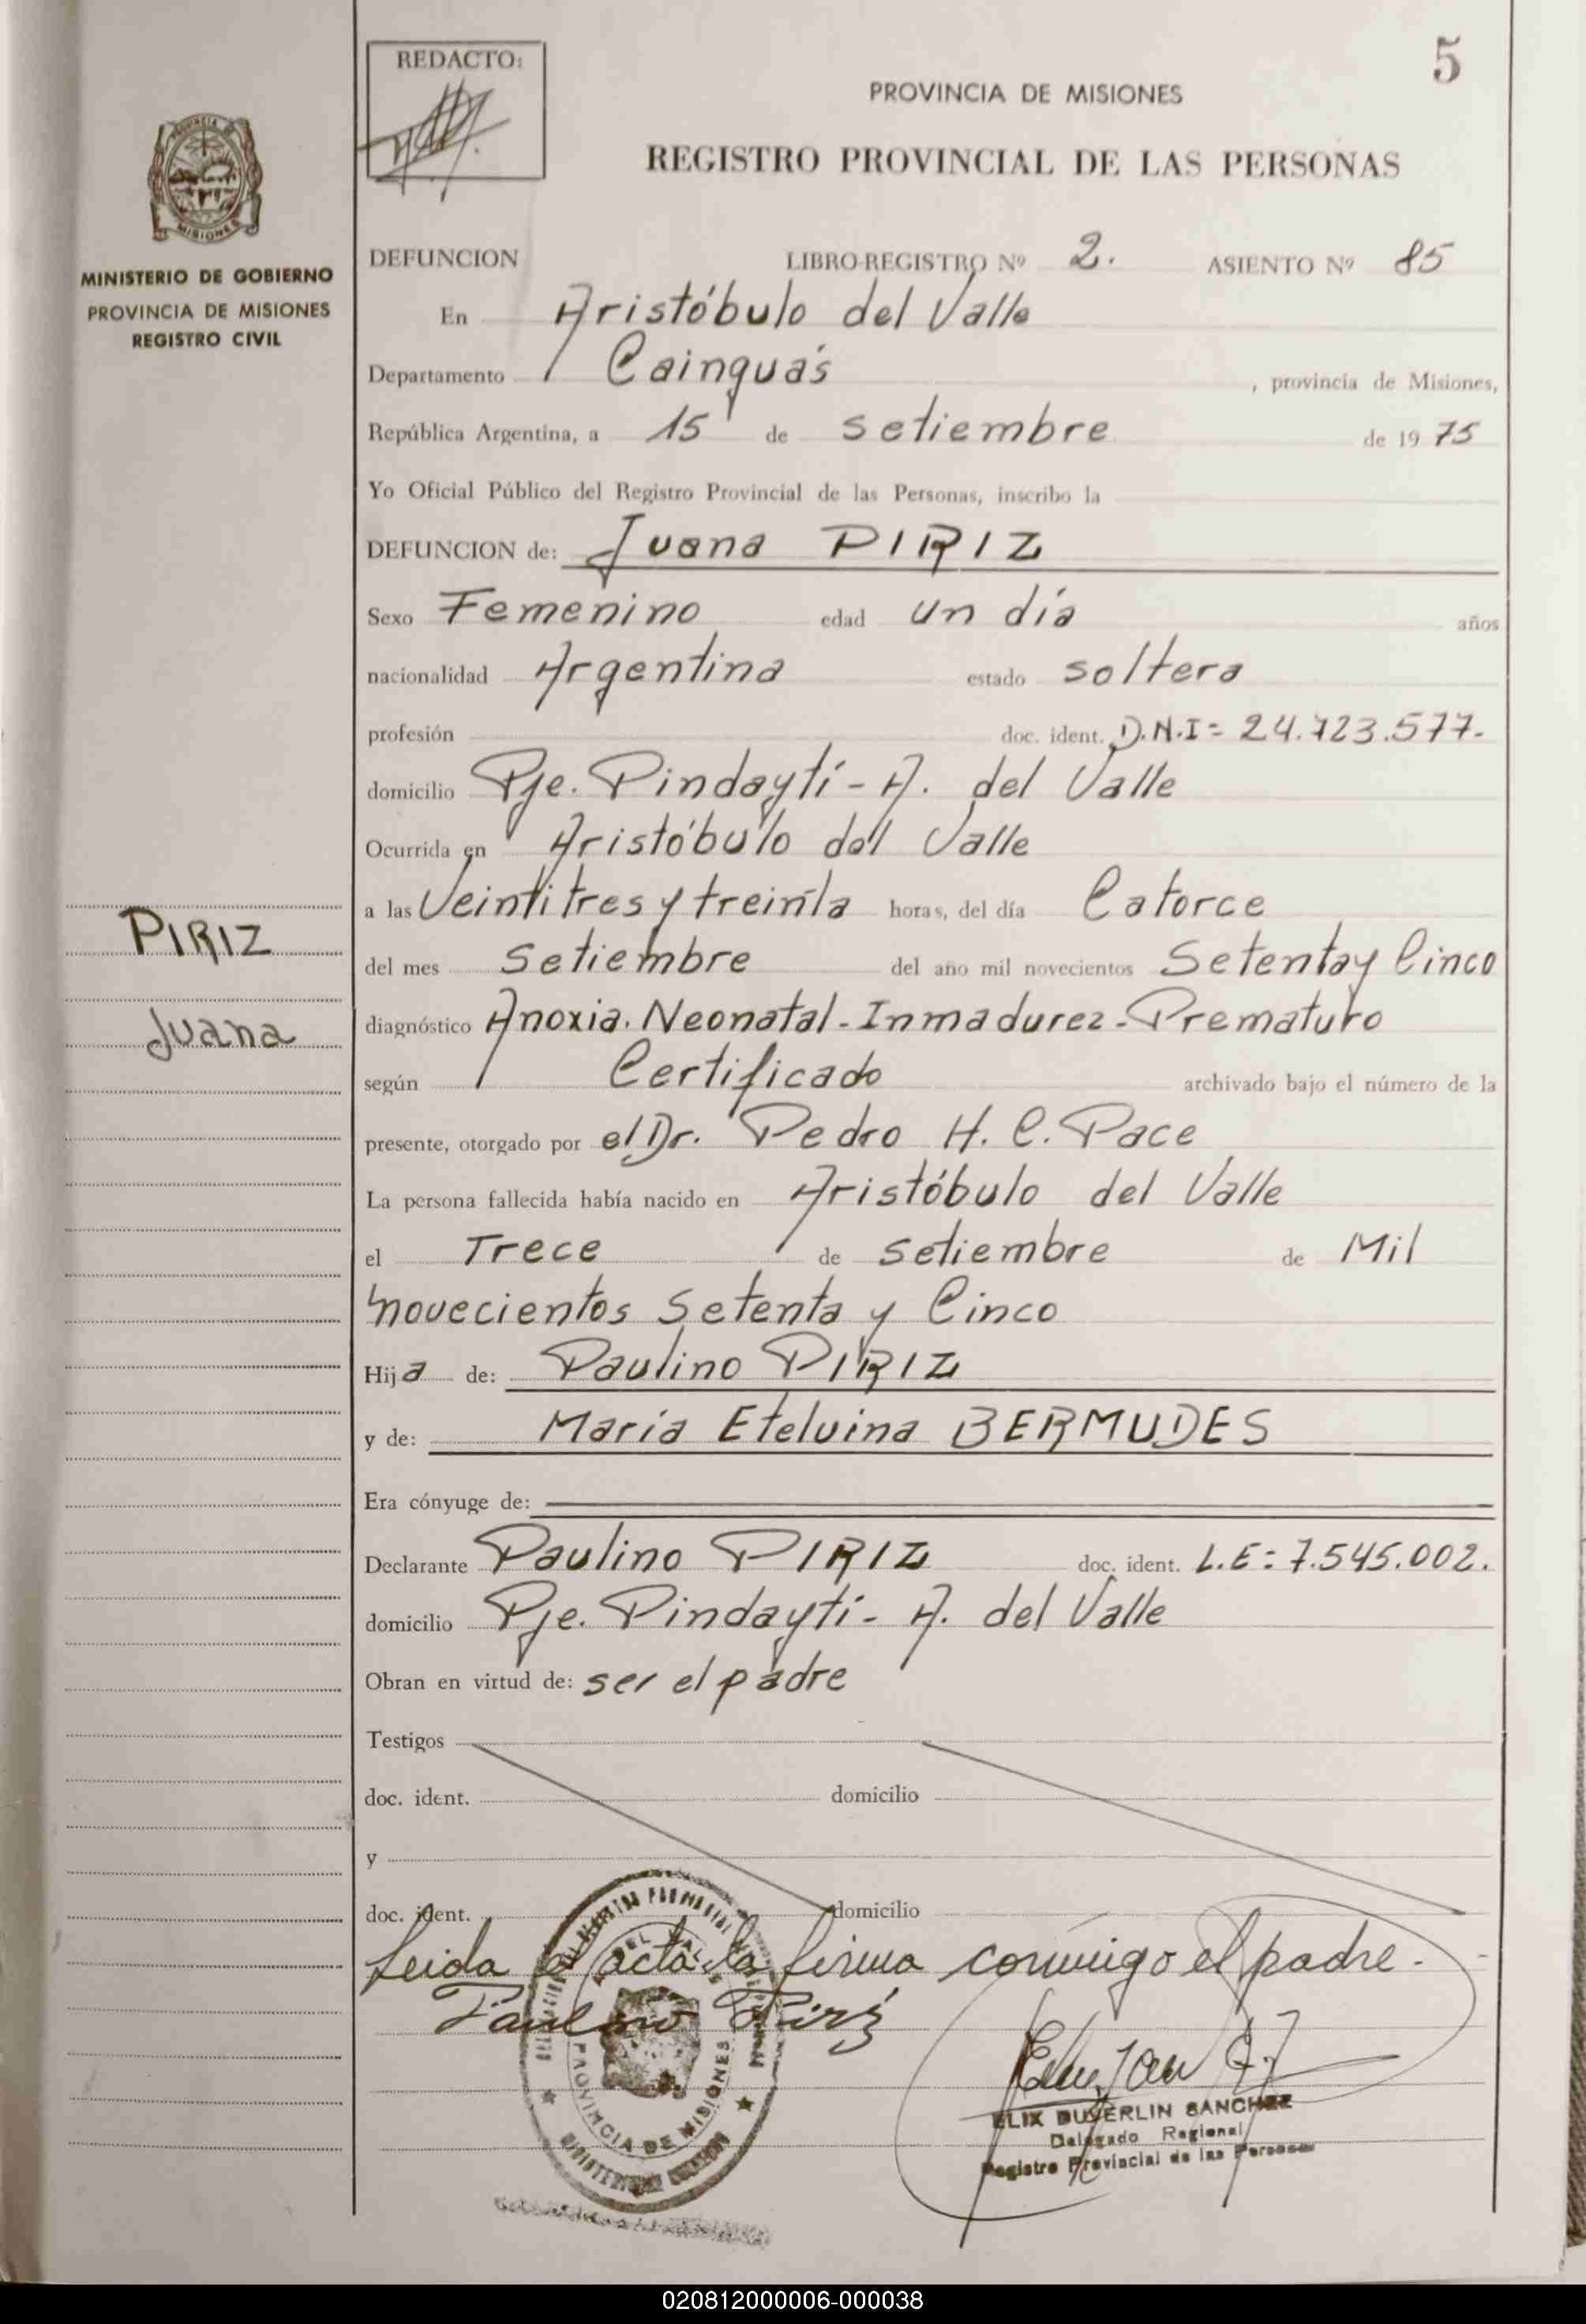 5
REDACTO:
PROVINCIA DE MISIONES
REGISTRO PROVINCIAL DE LAS PERSONAS
MISIONES
MINISTERIO DE GOBIERNO
PROVINCIA DE MISIONES
REGISTRO CIVIL
DEFUNCION LIBRO-REGISTRO Nº 2. ASIENTO Nº 85
En Aristóbulo del Valle
Departamento Cainguás, provincia de Misiones,
República Argentina, a 15 de setiembre de 1975
Yo Oficial Público del Registro Provincial de las Personas, inscribo la
DEFUNCION de: Juana PIRIZ
Sexo Femenino edad un día años
nacionalidad Argentina estado soltera
profesión doc. ident. D.N.I= 24.723.577.
domicilio Pje. Pindaytí - A. del Valle
Ocurrida en Aristóbulo del Valle
a las Veintitres y treinta horas, del día Catorce
del mes Setiembre del año mil novecientos Setenta y Cinco
PIRIZ
Juana
diagnóstico Anoxia. Neonatal - Inmadurez - Prematuro
según Certificado archivado bajo el número de la
presente, otorgado por el Dr. Pedro H. C. Pace
La persona fallecida había nacido en Aristóbulo del Valle
el Trece de setiembre de Mil
novecientos Setenta y Cinco
Hija de: Paulino PIRIZ
y de: María Etelvina BERMUDES
Era cónyuge de:
Declarante Paulino PIRIZ doc. ident. L.E: 7.545.002.
domicilio Pje. Pindaytí - A. del Valle
Obran en virtud de: ser el padre
Testigos
doc. ident. domicilio
y
doc. ident. domicilio
Leida el acta la firma conmigo el padre.
Paulino Piriz
PROVINCIA DE MISIONES
ELIX DUVERLIN SANCHEZ
Delegado Regional
Registro Provincial de las Personas
020812000006-000038